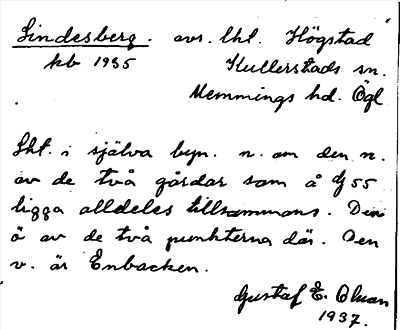 Lindesberg. avs. lht. Högstad
kb 1935 Kullerstads sn.
Memmings hd. Ögl
Lht. i själva byn. n. om den n.
av de två gårdar som å Gj 55
ligga alldeles tillsammans. Den
ö av de två punkterna där. Den
v. är Enbacken.
Gustaf E. Olsson
1937.